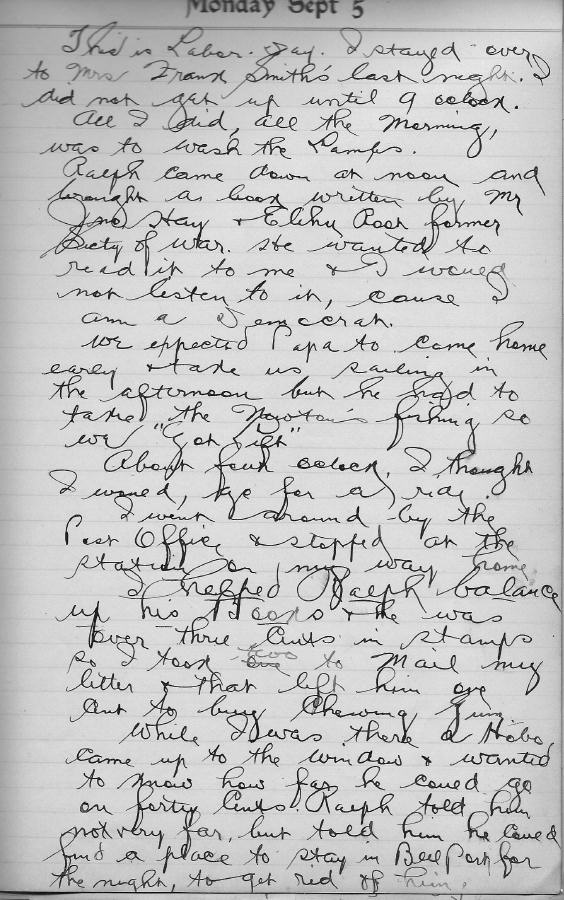 Monday Sept 5
This is Labor-Day. I stayed over
to Mrs Frank Smith's last night. I
did not get up until 9 oclock.
All I did, all the morning,
was to wash the Lamps.
Ralph came down at noon and
brought a book written by Mr
Jno Hay & Elihu Root former
Secty of War. He wanted to
read it to me & I would
not listen to it, cause I
am a Democrat.
We expected Papa to come home
early & take us sailing in
the afternoon but he had to
take the Newton's fishing so
we "Got Left"
About four oclock, I thought
I would, go for a ride.
I went around by the
Post Office & stopped at the
station on my way home
I helped Ralph balance
up his Books & he was
over three Cents in stamps
so I took two to Mail my
letter & that left him one
Cent to buy Chewing Gum.
While I was there a Hobo
came up to the window & wanted
to know how far he could go
on forty Cents. Ralph told him
not very far, but told him he could
find a place to stay in Bellport for
the night, to get rid of him.